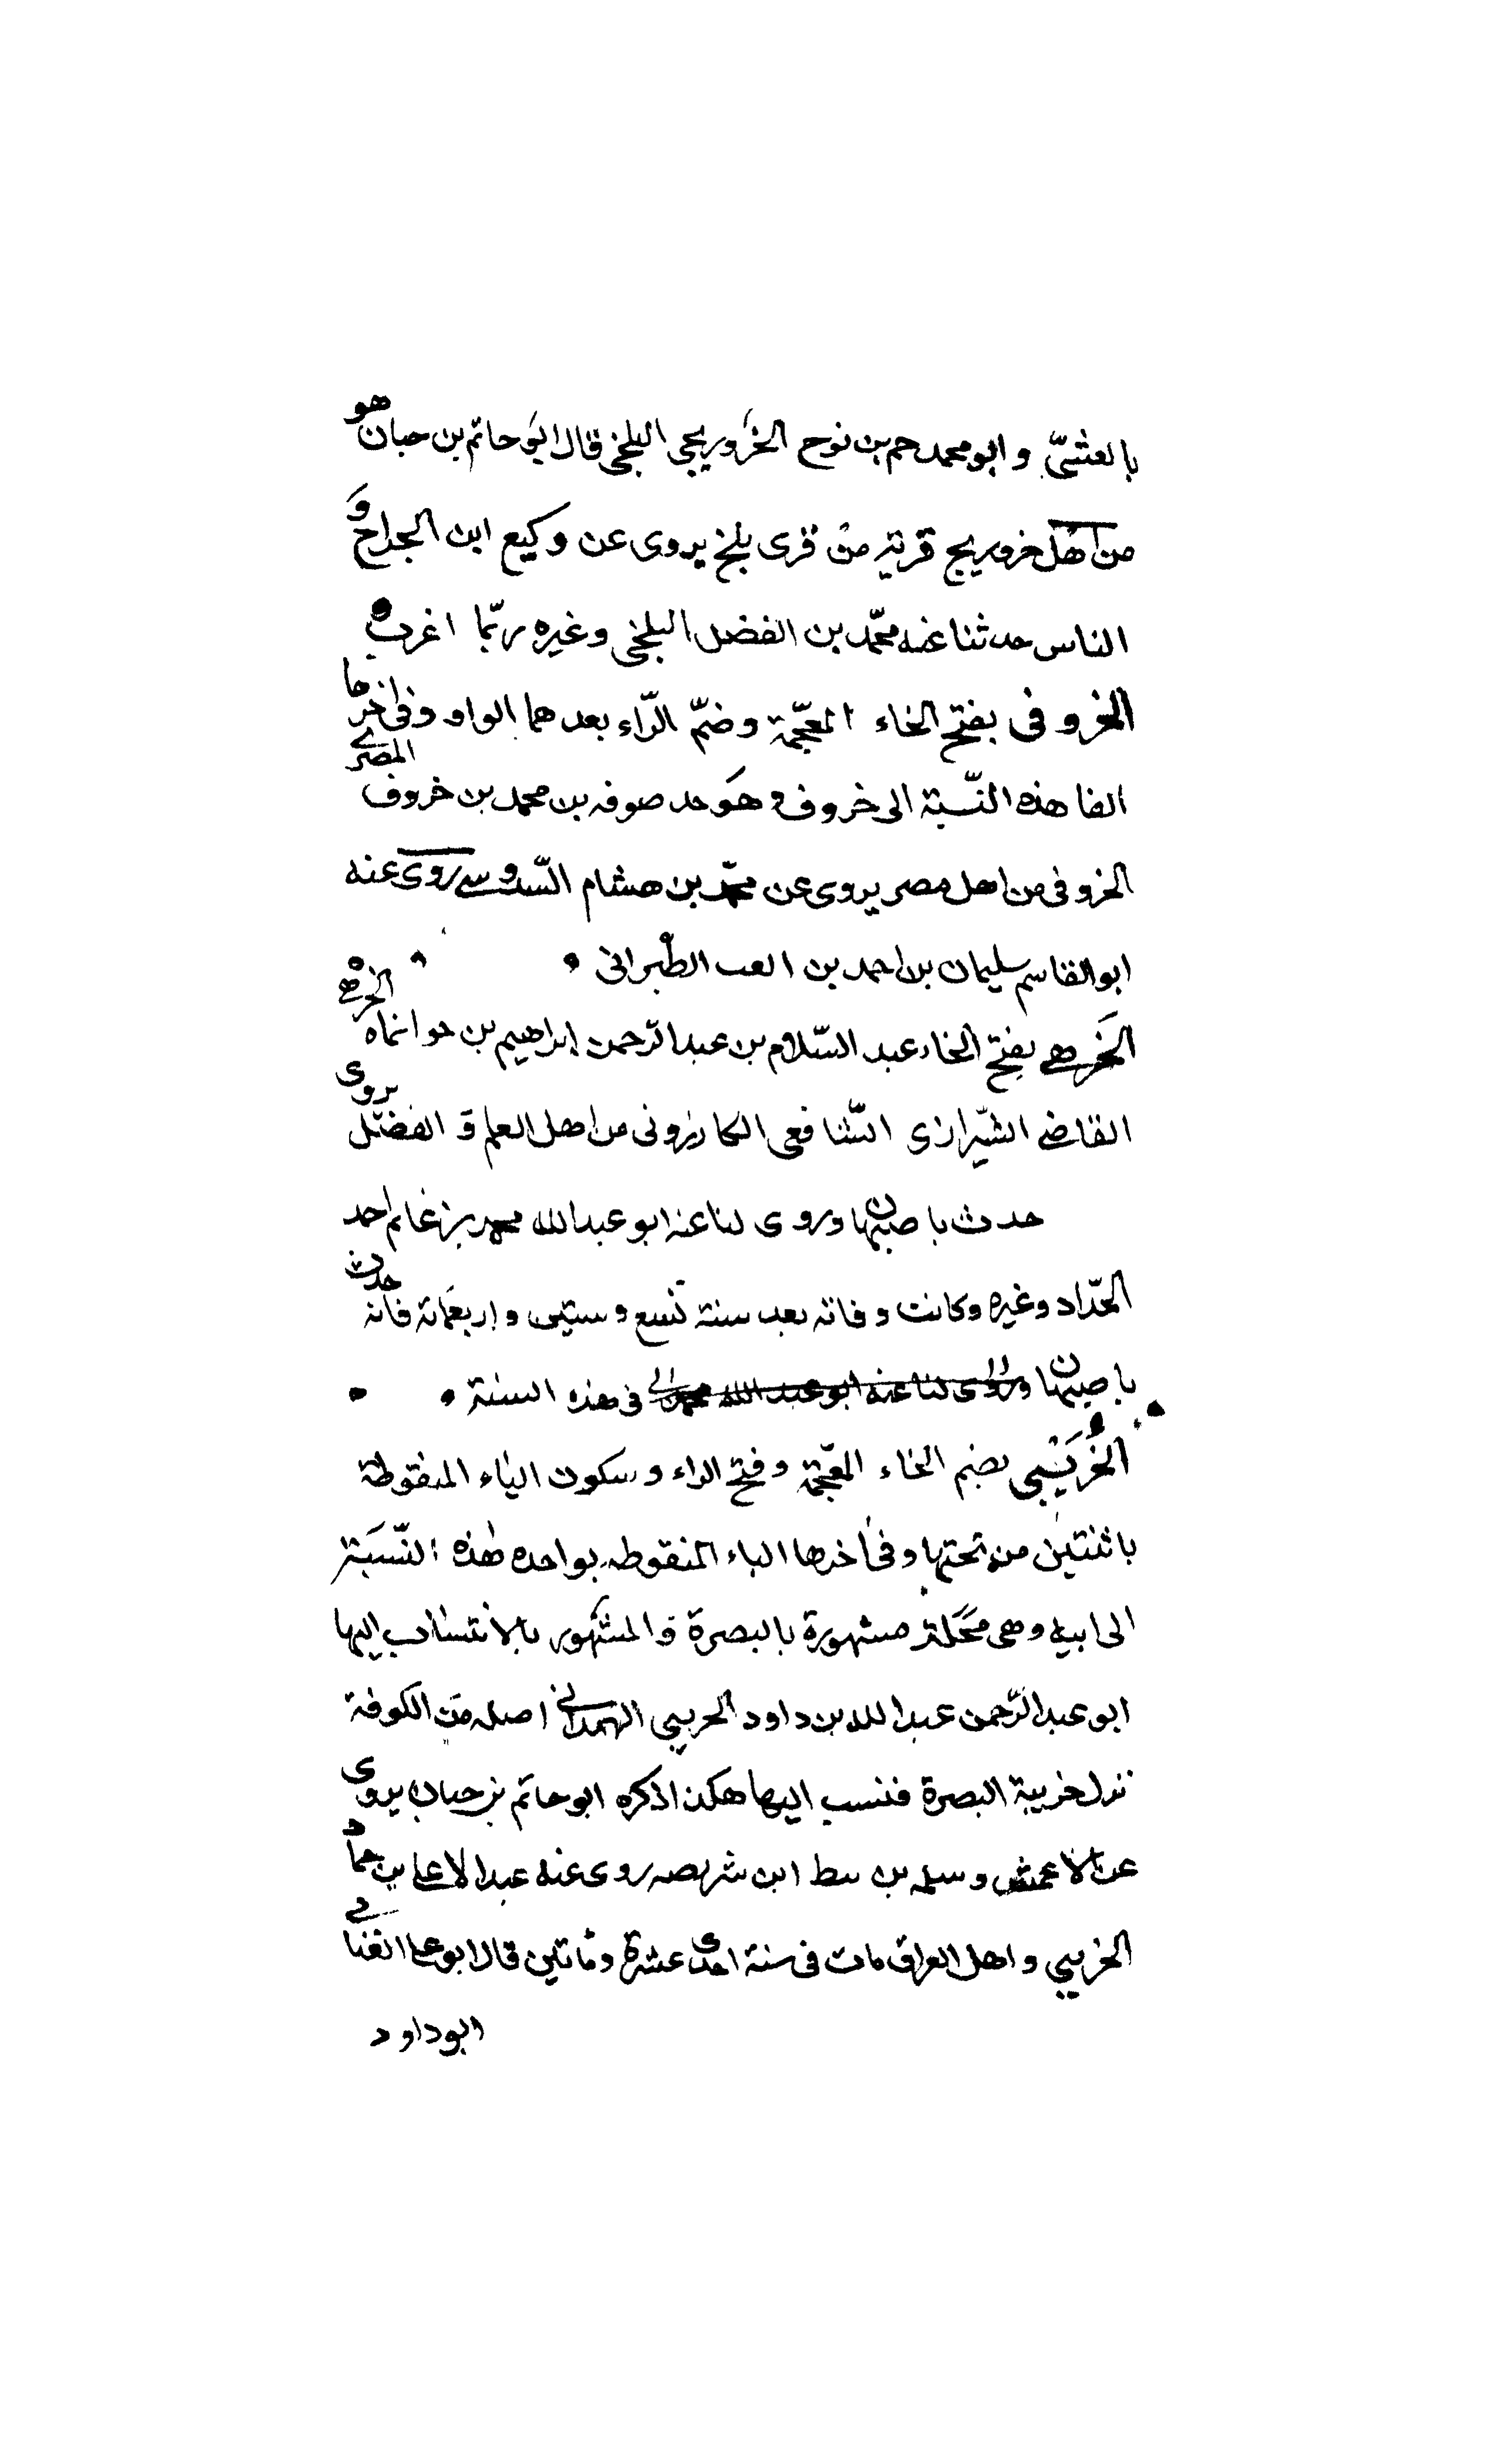 بالعشىّ و ابو محمد حم بن نوح الخَروريجى البلخى قال ابو حاتم بن حبان هو
من اهل خروريج قرية من قرى بلخ يروى عن وكيع ابن الجراح و
الناس حدثنا عنه محمّد بن الفضل البلخى وغيره ربّما اغرب ه
الخروفى بفتح الخاء المعجّمة وضمّ الرّاء بعدهما الواو وفى اخرها
الفا هذه النّسبة الى خروف وهو حد صوفه بن محمد بن خروف المصرى
الخروفى من اهل مصر يروى عن محمّد بن هشام السّدوسى روى عنه
ابو القاسم سليمان بن احمد بن الطبرانى
بفتح الخاء عبد السّلام بن عبد الرّحمن ابراهيم بن
القاضى الشّيرازى الشّافعى الكازرونى من اهل العلم و الفضل يروى
حدث باصبهان وروى لنا عنه ابو عبد الله محمد بن غانم احمد
الحدّاد وغيره وكانت وفاته بعد سنة تسع وستين واربعمائة فانه حدث
باصبهان وروى لنا عنه ابو عبد الله محمد فى هذه السنة
الخُرَيْبى بضم الخاء المعجّمة وفتح الراء وسكون الياء المنقوطة
باثنتين من تحتها وفى آخرها الباء المنقوطه بواحده هذه النّسَبة
الى ابيه وهى محَلة مشهورة بالبصرة والمشهور بالانتساب اليها
ابو عبد الرّحمن عبد الله بن داود الحريبى الهمدانى اصله من الكوفة
نزل خريبة البصرة فنسب اليها هكذا ذكره ابو حاتم بن حبان يروى
عن الاعمش وسلمه بن روى عنه عبد الاعلى بن حماد
الخريبى و اهل العراق مات فى سنة احدى عشرة ومائتين قال ابو على الغسانى
ابو داود